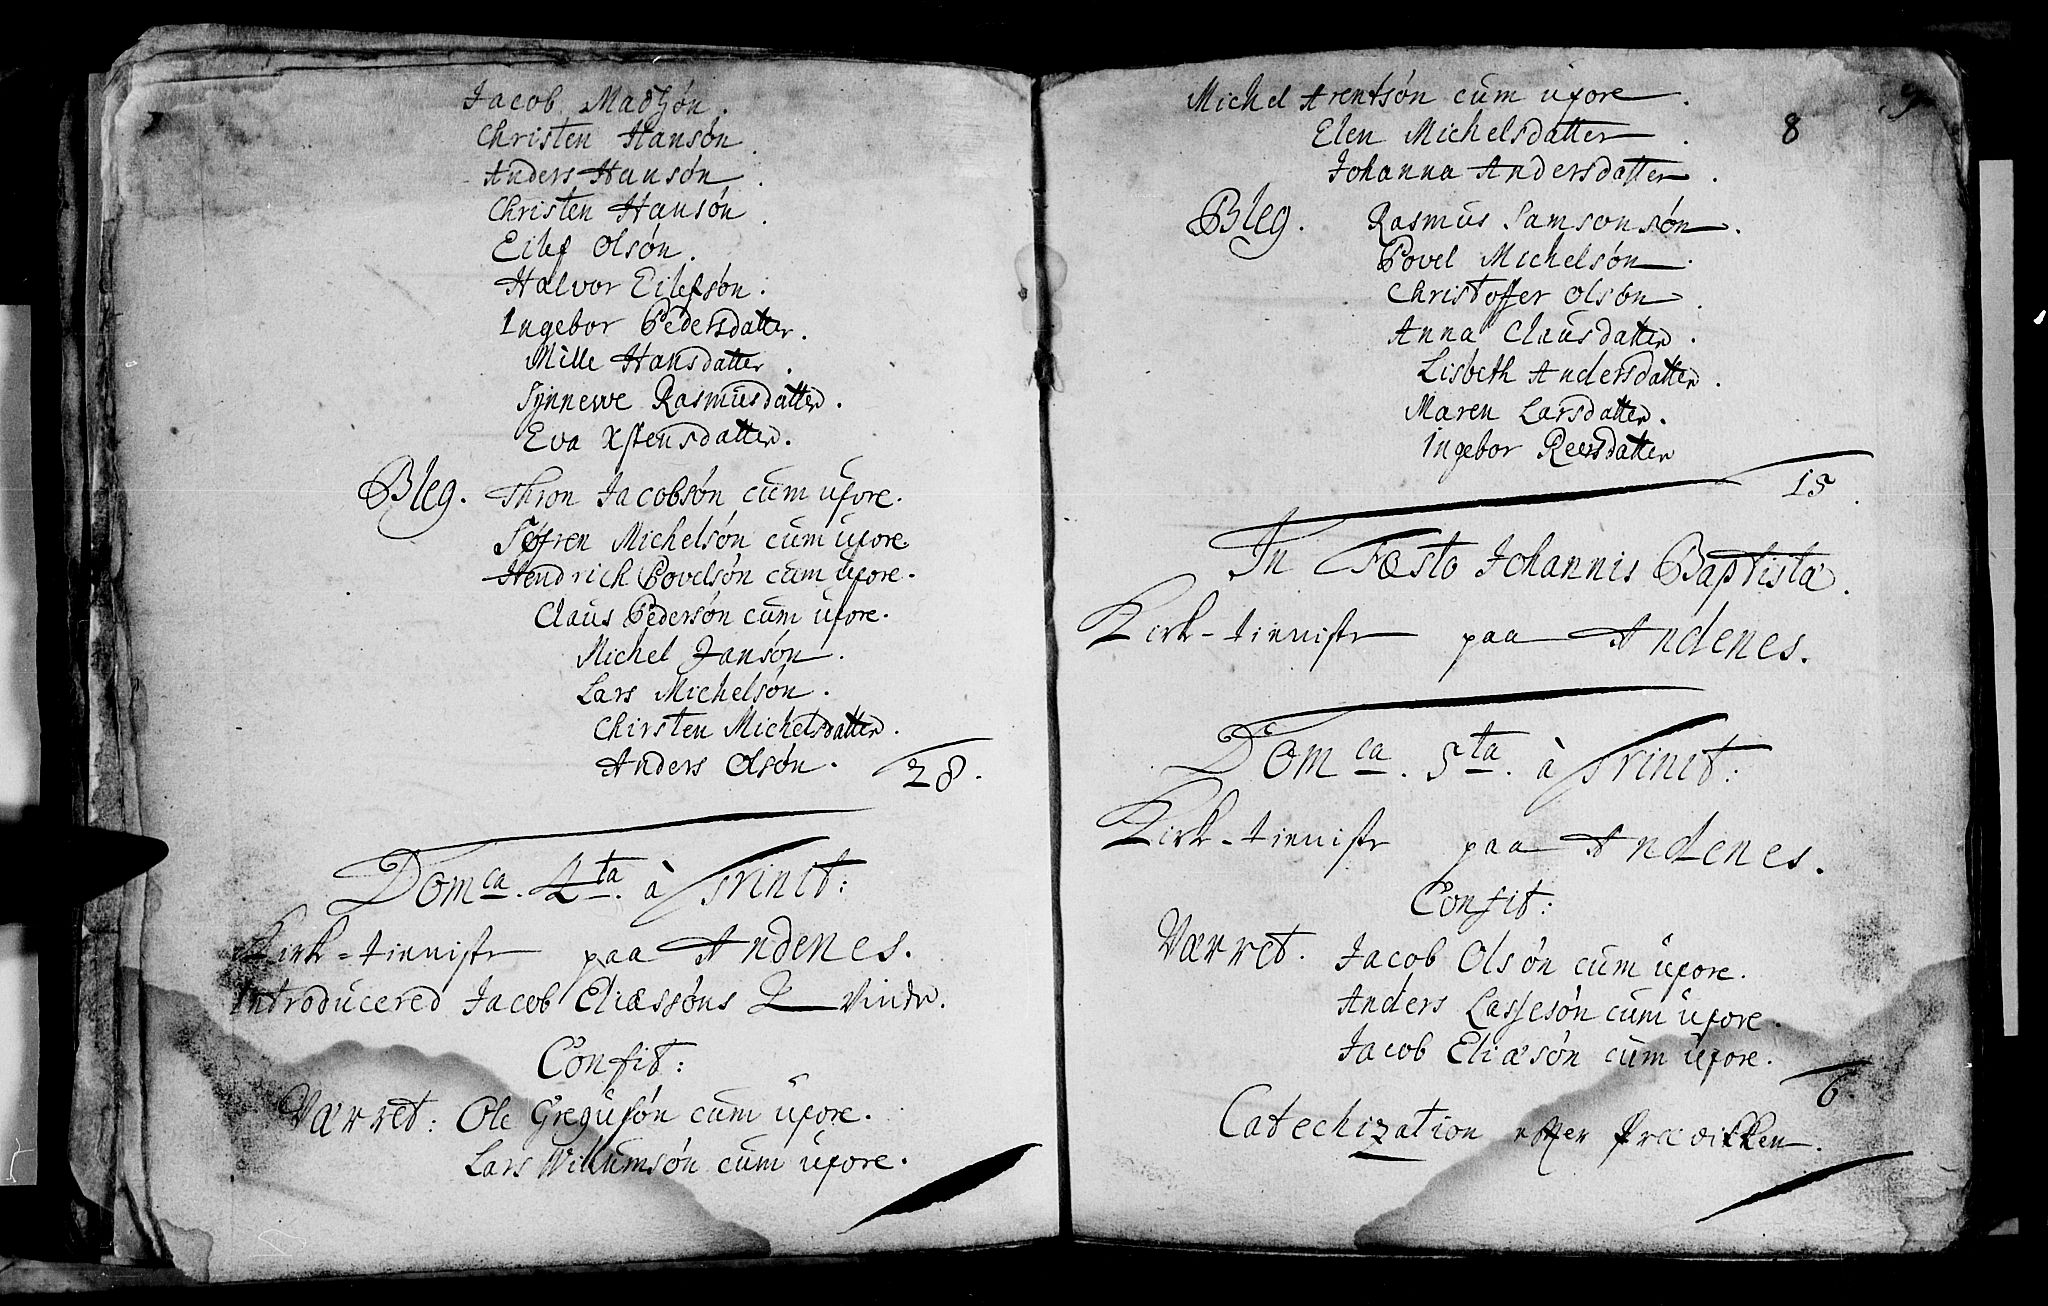 Jacob Madsøn.
Christen Hansøn.
Anders Hansøn.
Christen Hansøn.
Eilef Olsøn.
Halvor Eilefsøn.
Ingebor Pedersdatter.
Mille Hansdatter.
Synnewe Rasmusdatter.
Eva Xstensdatter.
Bleg. Thron Jacobsøn cum uxore.
Søfren Michelsøn cum uxore.
Hendrich Povelsøn cum uxore.
Claus Pedersøn cum uxore.
Michel Jansøn.
Lars Michelsøn.
Chirsten Michelsdatter.
Anders Olsøn. 28.
Domca. 4ta. à Trinit:
Kirk-tienistr paa Andenes.
Introducered Jacob Eliæssøns Qvinde.
Confit:
Værret: Ole Gregusøn cum uxore.
Lars Willumsøn cum uxore.
9
8
Michel Arentsøn cum uxore.
Elen Michelsdatter.
Johanna Andersdatter.
Bleg. Rasmus Samsonsøn.
Povel Michelsøn.
Christoffer Olsøn.
Anna Clausdatter.
Lisbeth Andersdatter.
Maren Larsdatter.
Ingebor Reersdatter
15.
In Fæsto Johannis Baptistæ.
Kirk-tienistr paa Andenes.
Domca. 5ta. à Trinit:
Kirk-tienistr paa Andenes.
Confit:
Værret. Jacob Olsøn cum uxore.
Anders Lassesøn cum uxore.
Jacob Eliæsøn cum uxore.
6.
Catechization efter Prædikken.